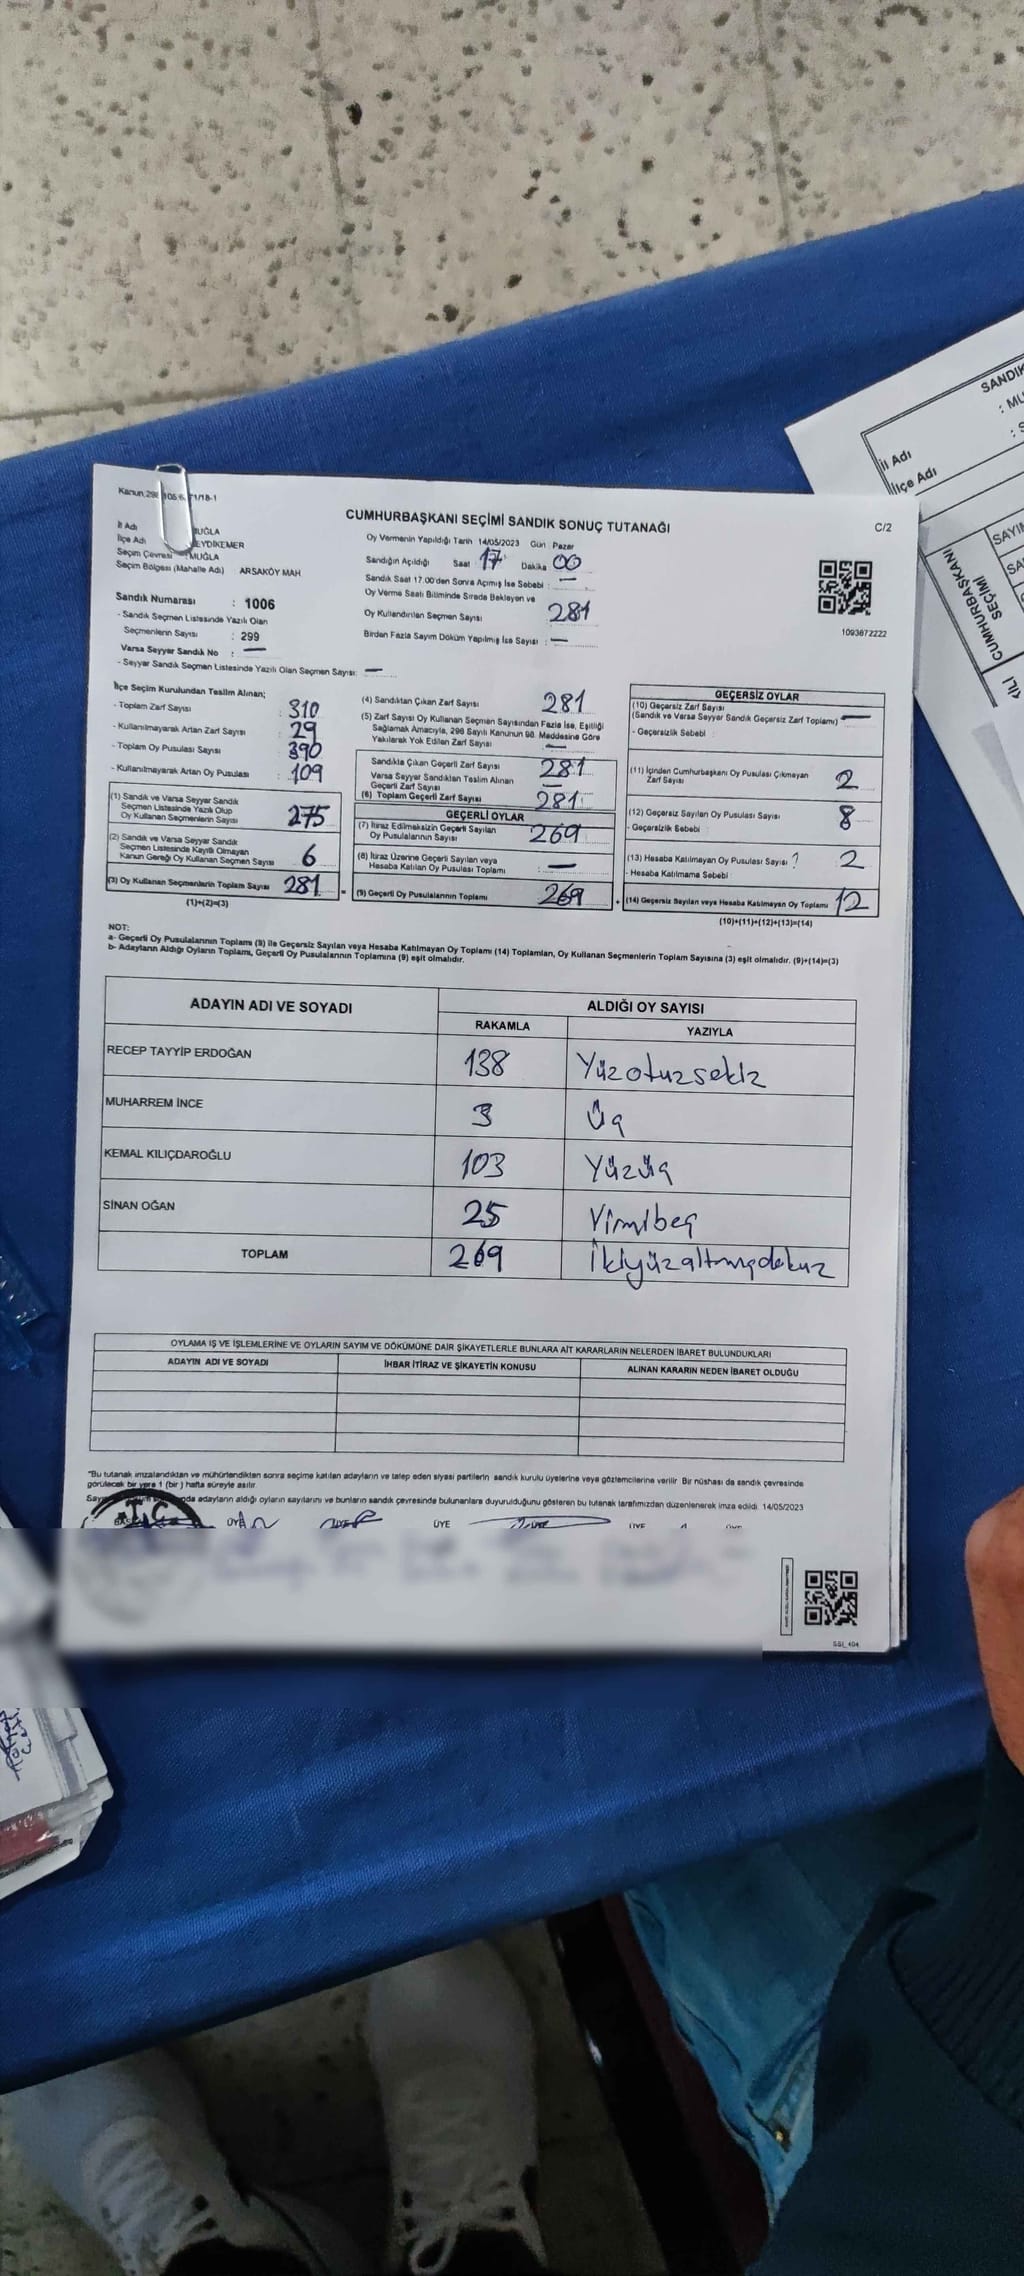 CUMHURBAŞKANI SEÇİMİ SANDIK SONUÇ TUTANAĞI
C/2
İl Adı MUĞLA
İlçe Adı SEYDİKEMER
Seçim Çevresi : MUĞLA
Seçim Bölgesi (Mahalle Adı) : ARSAKÖY MAH
Sandık Numarası : 1006
- Sandık Seçmen Listesinde Yazılı Olan
Seçmenlerin Sayısı : 299
Varsa Seyyar Sandık No : —
- Seyyar Sandık Seçmen Listesinde Yazılı Olan Seçmen Sayısı: —
Oy Vermenin Yapıldığı Tarih 14/05/2023 Gün Pazar
Sandığın Açıldığı Saat 17 Dakika 00
Sandık Saat 17.00'den Sonra Açılmış İse Sebebi : —
Oy Verme Saati Bitiminde Sırada Bekleyen ve
Oy Kullandırılan Seçmen Sayısı 281
Birden Fazla Sayım Döküm Yapılmış İse Sayısı : —
1093672222
İlçe Seçim Kurulundan Teslim Alınan;
- Toplam Zarf Sayısı : 310
- Kullanılmayarak Artan Zarf Sayısı : 29
- Toplam Oy Pusulası Sayısı : 390
- Kullanılmayarak Artan Oy Pusulası : 109
(1) Sandık ve Varsa Seyyar Sandık
Seçmen Listesinde Yazılı Olup
Oy Kullanan Seçmenlerin Sayısı 275
(2) Sandık ve Varsa Seyyar Sandık
Seçmen Listesinde Kayıtlı Olmayan
Kanun Gereği Oy Kullanan Seçmen Sayısı 6
(3) Oy Kullanan Seçmenlerin Toplam Sayısı 281
(1)+(2)=(3)
(4) Sandıktan Çıkan Zarf Sayısı 281
(5) Zarf Sayısı Oy Kullanan Seçmen Sayısından Fazla İse, Eşitliği
Sağlamak Amacıyla, 298 Sayılı Kanunun 98. Maddesine Göre
Yakılarak Yok Edilen Zarf Sayısı —
Sandıkta Çıkan Geçerli Zarf Sayısı 281
Varsa Seyyar Sandıktan Teslim Alınan
Geçerli Zarf Sayısı —
(6) Toplam Geçerli Zarf Sayısı 281
GEÇERLİ OYLAR
(7) İtiraz Edilmeksizin Geçerli Sayılan
Oy Pusulalarının Sayısı 269
(8) İtiraz Üzerine Geçerli Sayılan veya
Hesaba Katılan Oy Pusulası Toplamı —
= (9) Geçerli Oy Pusulalarının Toplamı 269
GEÇERSİZ OYLAR
(10) Geçersiz Zarf Sayısı
(Sandık ve Varsa Seyyar Sandık Geçersiz Zarf Toplamı) —
- Geçersizlik Sebebi :
(11) İçinden Cumhurbaşkanı Oy Pusulası Çıkmayan
Zarf Sayısı 2
(12) Geçersiz Sayılan Oy Pusulası Sayısı 8
- Geçersizlik Sebebi :
(13) Hesaba Katılmayan Oy Pusulası Sayısı ? 2
- Hesaba Katılmama Sebebi :
+ (14) Geçersiz Sayılan veya Hesaba Katılmayan Oy Toplamı 12
(10)+(11)+(12)+(13)=(14)
NOT:
a- Geçerli Oy Pusulalarının Toplamı (9) ile Geçersiz Sayılan veya Hesaba Katılmayan Oy Toplamı (14) Toplamları, Oy Kullanan Seçmenlerin Toplam Sayısına (3) eşit olmalıdır. (9)+(14)=(3)
b- Adayların Aldığı Oyların Toplamı, Geçerli Oy Pusulalarının Toplamına (9) eşit olmalıdır.
ADAYIN ADI VE SOYADI ALDIĞI OY SAYISI
RAKAMLA YAZIYLA
RECEP TAYYİP ERDOĞAN 138 Yüzotuzsekiz
MUHARREM İNCE 3 Üç
KEMAL KILIÇDAROĞLU 103 Yüzüç
SİNAN OĞAN 25 Yirmibeş
TOPLAM 269 İkiyüzaltmışdokuz
OYLAMA İŞ VE İŞLEMLERİNE VE OYLARIN SAYIM VE DÖKÜMÜNE DAİR ŞİKAYETLERLE BUNLARA AİT KARARLARIN NELERDEN İBARET BULUNDUKLARI
ADAYIN ADI VE SOYADI İHBAR İTİRAZ VE ŞİKAYETİN KONUSU ALINAN KARARIN NEDEN İBARET OLDUĞU
*Bu tutanak imzalandıktan ve mühürlendikten sonra seçime katılan adayların ve talep eden siyasi partilerin sandık kurulu üyelerine veya gözlemcilerine verilir. Bir nüshası da sandık çevresinde
görülecek bir yere 1 (bir) hafta süreyle asılır.
adayların aldığı oyların sayılarını ve bunların sandık çevresinde bulunanlara duyurulduğunu gösteren bu tutanak tarafımızdan düzenlenerek imza edildi. 14/05/2023
T.C.
ÜYE ÜYE ÜYE ÜYE ÜYE
İl Adı
İlçe Adı
CUMHURBAŞKANI
SEÇİMİ